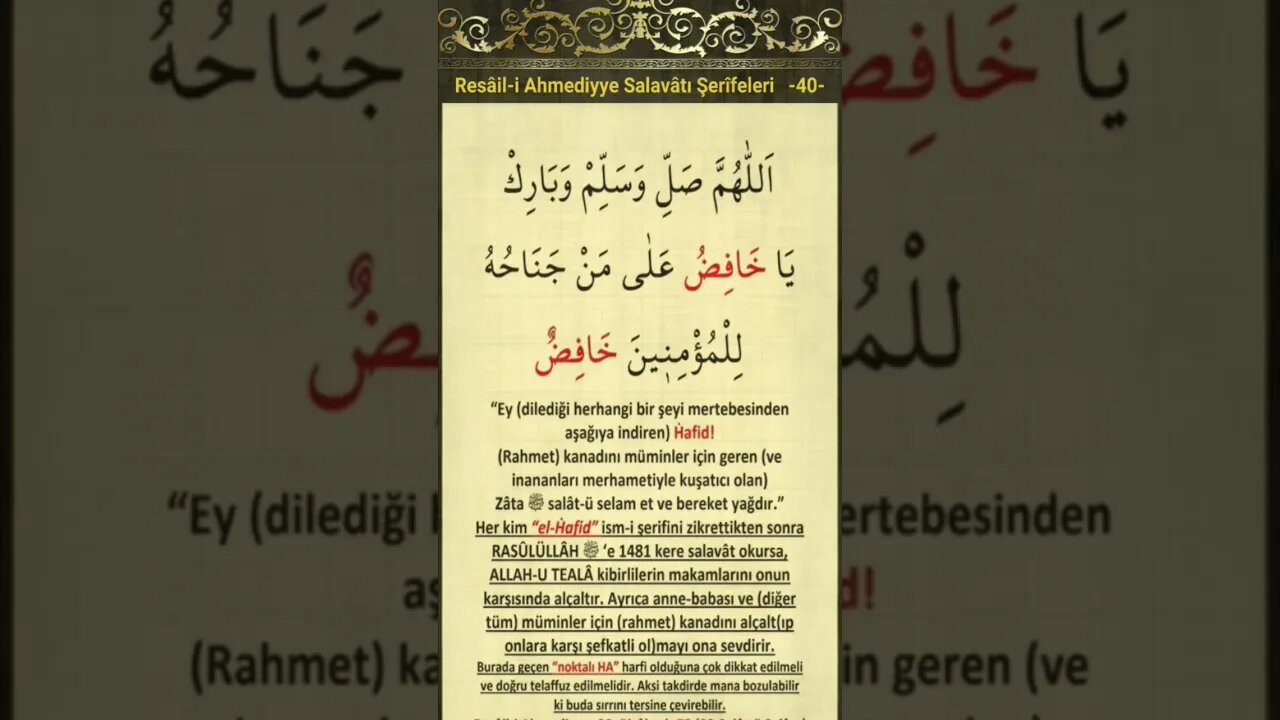 Resâil-i Ahmediyye Salavâtı Şerîfeleri -40-
اَللّٰهُمَّ صَلِّ وَسَلِّمْ وَبَارِكْ
يَا خَافِضُ عَلٰى مَنْ جَنَاحُهُ
لِلْمُؤْمِنِينَ خَافِضٌ
“Ey (dilediği herhangi bir şeyi mertebesinden
aşağıya indiren) Ḣafid!
(Rahmet) kanadını müminler için geren (ve
inananları merhametiyle kuşatıcı olan)
Zâta ﷺ salât-ü selam et ve bereket yağdır.”
Her kim “el-Ḣafid” ism-i şerifini zikrettikten sonra
RASÛLÜLLÂH ﷺ ‘e 1481 kere salavât okursa,
ALLAH-U TEALÂ kibirlilerin makamlarını onun
karşısında alçaltır. Ayrıca anne-babası ve (diğer
tüm) müminler için (rahmet) kanadını alçalt(ıp
onlara karşı şefkatli ol)mayı ona sevdirir.
Burada geçen “noktalı HA” harfi olduğuna çok dikkat edilmeli
ve doğru telaffuz edilmelidir. Aksi takdirde mana bozulabilir
ki buda sırrını tersine çevirebilir.